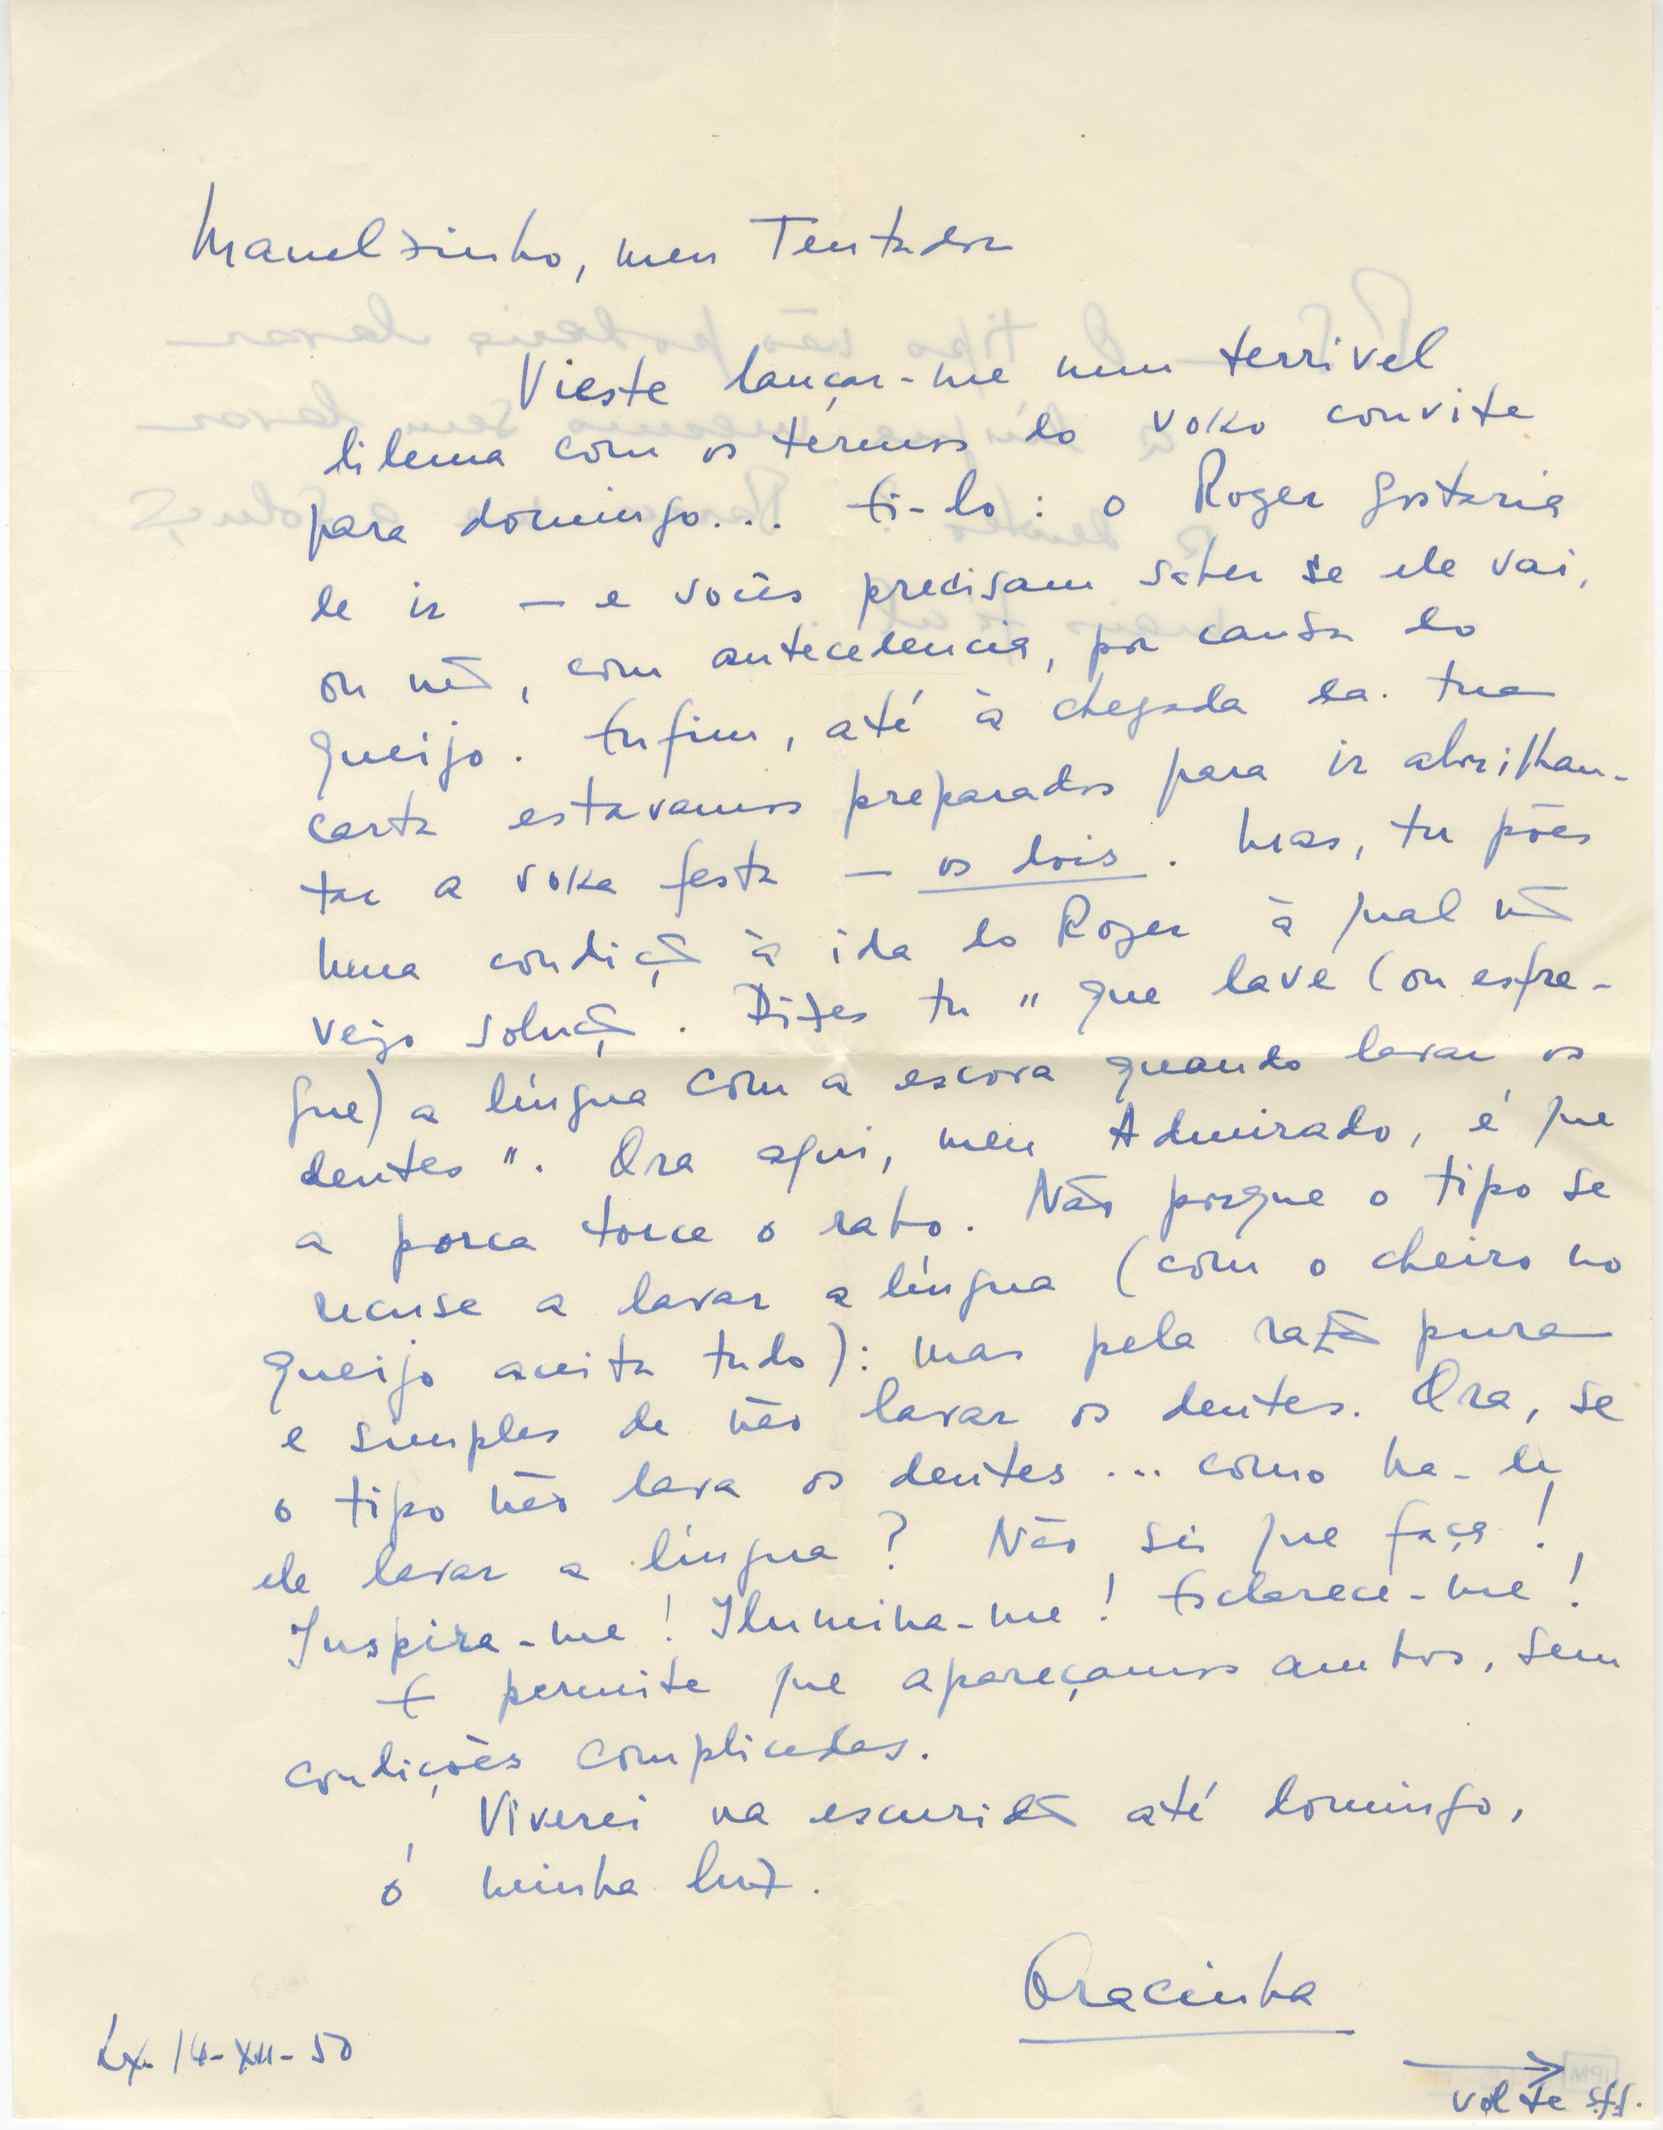 Manuelzinho, meu Tentador
Vieste lançar-me num terrivel
dilema com os têrmos do vosso convite
para domingo... Ei-lo: o Roger gostaria
de ir — e vocês precisam saber se ele vai,
ou não, com antecedencia, por causa do
queijo. Enfim, até à chegada da tua
carta estavamos preparados para ir abrilhan-
tar a vossa festa — os dois. Mas, tu pões
uma condição à ida do Roger à qual não
vejo solução. Dizes tu "que lave (ou esfre-
gue) a língua com a escova quando lavar os
dentes". Ora aqui, meu Admirado, é que
a porca torce o rabo. Não porque o tipo se
recuse a lavar a língua (com o cheiro no
queijo aceita tudo): mas pela razão pura
e simples de não lavar os dentes. Ora, se
o tipo não lava os dentes... como ha-de
ele lavar a língua? Não sei que faça!
Inspira-me! Ilumina-me! Esclarece-me!
E permite que apareçamos ambos, sem
condições complicadas.
Viverei na escuridão até domingo,
ó minha luz.
Gracinha
Lx. 14-XII-50
volte sff.